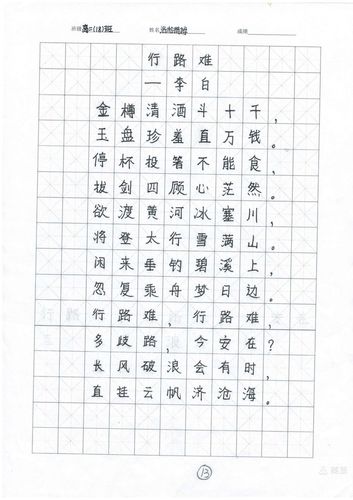 班级高二(18)班 姓名 成绩
行路难
—李白
金樽清酒斗十千，
玉盘珍羞直万钱。
停杯投箸不能食，
拔剑四顾心茫然。
欲渡黄河冰塞川，
将登太行雪满山。
闲来垂钓碧溪上，
忽复乘舟梦日边。
行路难，行路难，
多歧路，今安在？
长风破浪会有时，
直挂云帆济沧海。
13